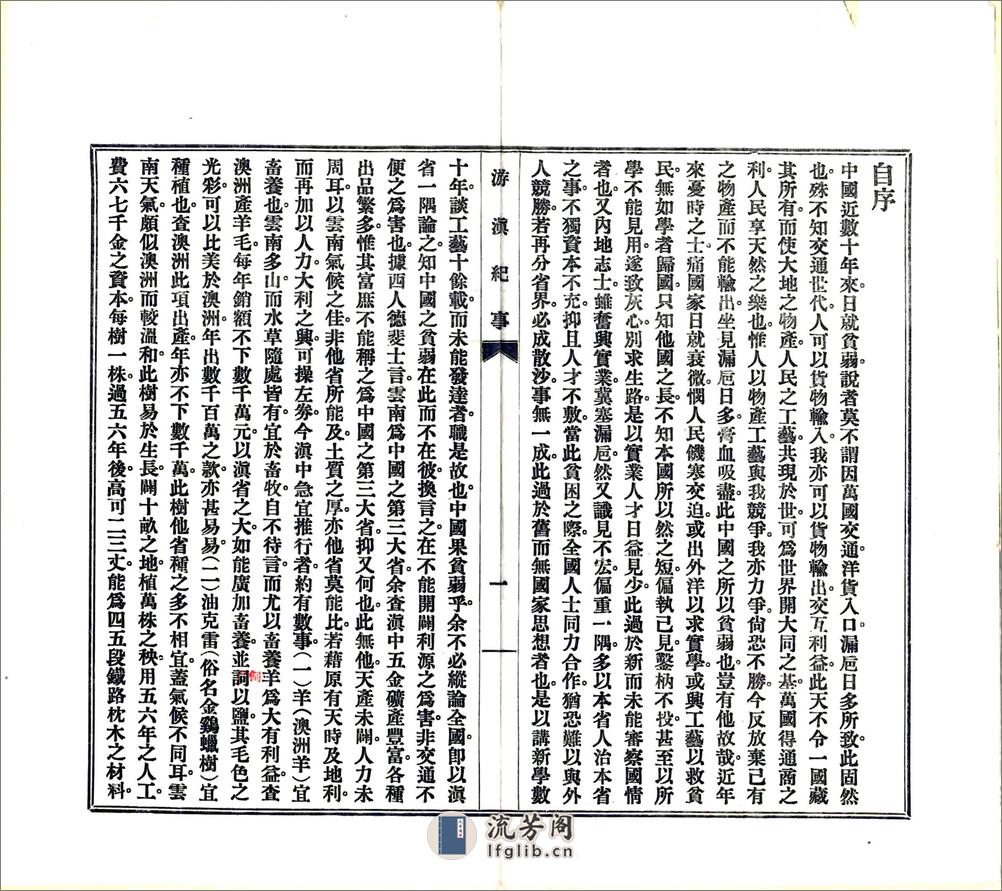 自序
中國近數十年來。日就貧弱。說者莫不謂因萬國交通。洋貨入口。漏巵日多所致。此固然
也。殊不知交通世代。人可以貨物輸入。我亦可以貨物輸出。交互利益。此天不令一國藏
其所有。而使大地之物產。人民之工藝。共現於世。可爲世界開大同之基。萬國得通商之
利。人民享天然之樂也。惟人以物產工藝與我競爭。我亦力爭。尙恐不勝。今反放棄已有
之物產而不能輸出。坐見漏巵日多。膏血吸盡。此中國之所以貧弱也。豈有他故哉。近年
來憂時之士。痛國家日就衰微。憫人民饑寒交迫。或出外洋以求實學。或興工藝以救貧
民。無如學者歸國。只知他國之長。不知本國所以然之短。偏執己見。鑿枘不投。甚至以所
學不能見用。遂致灰心。別求生路。是以實業人才。日益見少。此過於新而未能審察國情
者也。又內地志士。雖奮興實業。冀塞漏巵。然又識見不宏。偏重一隅。多以本省人治本省
之事。不獨資本不充。抑且人才不敷。當此貧困之際。全國人士同力合作。猶恐難以與外
人競勝。若再分省界。必成散沙。事無一成。此過於舊而無國家思想者也。是以講新學數
游滇紀事
一
十年。談工藝十餘載。而未能發達者。職是故也。中國果貧弱乎。余不必縱論全國。卽以滇
省一隅論之。知中國之貧弱。在此而不在彼。換言之。在不能開闢利源之爲害。非交通不
便之爲害也。據西人德斐士言。雲南爲中國之第三大省。余查滇中五金礦產豐富。各種
出品繁多。惟其富庶不能稱之爲中國之第三大省。抑又何也。此無他。天產未闢。人力未
周耳。以雲南氣候之佳。非他省所能及。土質之厚。亦他省莫能比。若藉原有天時及地利。
而再加以人力。大利之興。可操左劵。今滇中急宜推行者。約有數事。（一）羊（澳洲羊）宜
畜養也。雲南多山。而水草隨處皆有。宜於畜牧。自不待言。而尤以畜養羊爲大有利益。查
澳洲產羊毛。每年銷額不下數千萬元。以滇省之大。如能廣加畜養。並詞以鹽。其毛色之
飼
光彩。可以比美於澳洲。年出數千百萬之款。亦甚易易。（二）油克雷（俗名金鷄蠟樹）宜
種植也。查澳洲此項出產。年亦不下數千萬。此樹他省種之多不相宜。蓋氣候不同耳。雲
南天氣。頗似澳洲而較溫和。此樹易於生長。闢十畝之地。植萬株之秧。用五六年之人工。
費六七千金之資本。每樹一株。過五六年後。高可二三丈。能爲四五段鐵路枕木之材料。
流芳阁
lfglib.cn